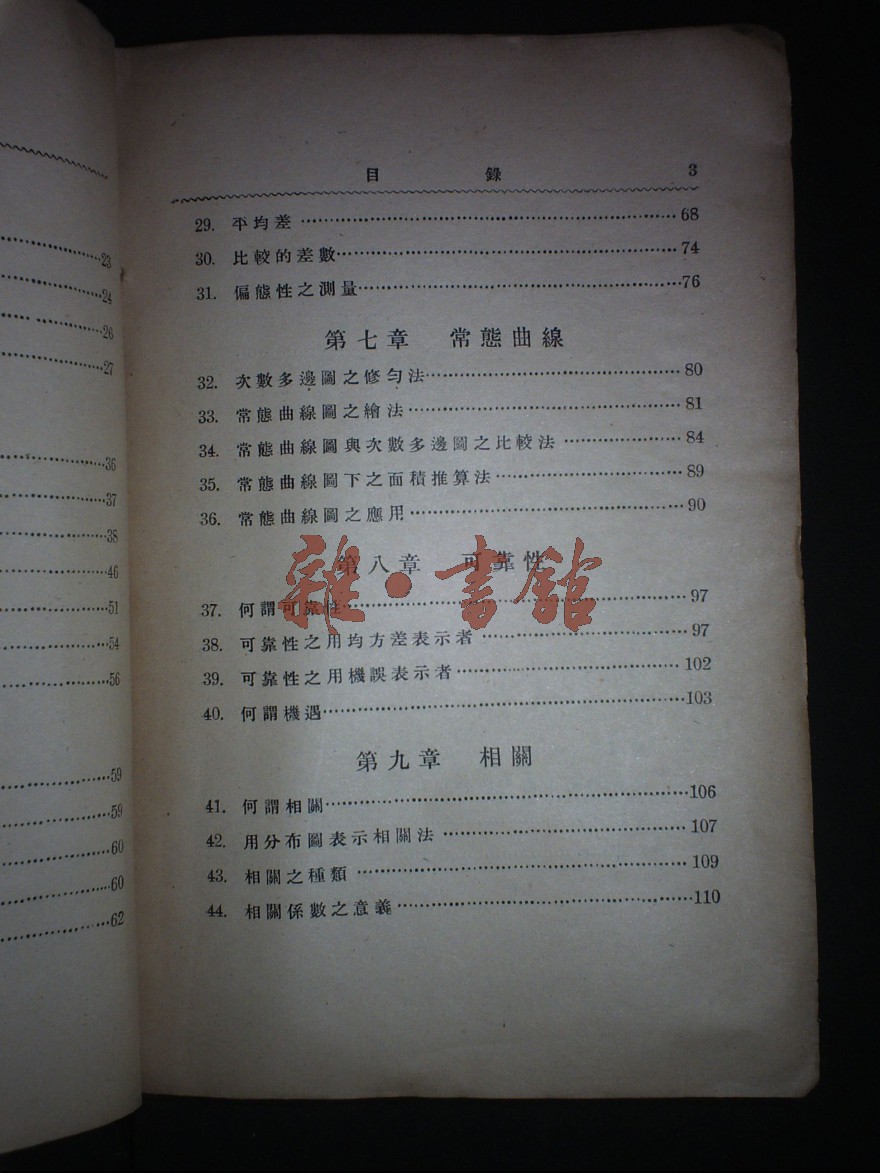 23
24
26
27
36
37
38
46
51
54
56
59
59
60
60
62
目 錄 3
29. 平均差 68
30. 比較的差數 74
31. 偏態性之測量 76
第七章 常態曲線
32. 次數多邊圖之修勻法 80
33. 常態曲線圖之繪法 81
34. 常態曲線圖與次數多邊圖之比較法 84
35. 常態曲線圖下之面積推算法 89
36. 常態曲線圖之應用 90
第八章 可靠性
雜·書館
37. 何謂可靠性 97
38. 可靠性之用均方差表示者 97
39. 可靠性之用機誤表示者 102
40. 何謂機遇 103
第九章 相關
41. 何謂相關 106
42. 用分布圖表示相關法 107
43. 相關之種類 109
44. 相關係數之意義 110